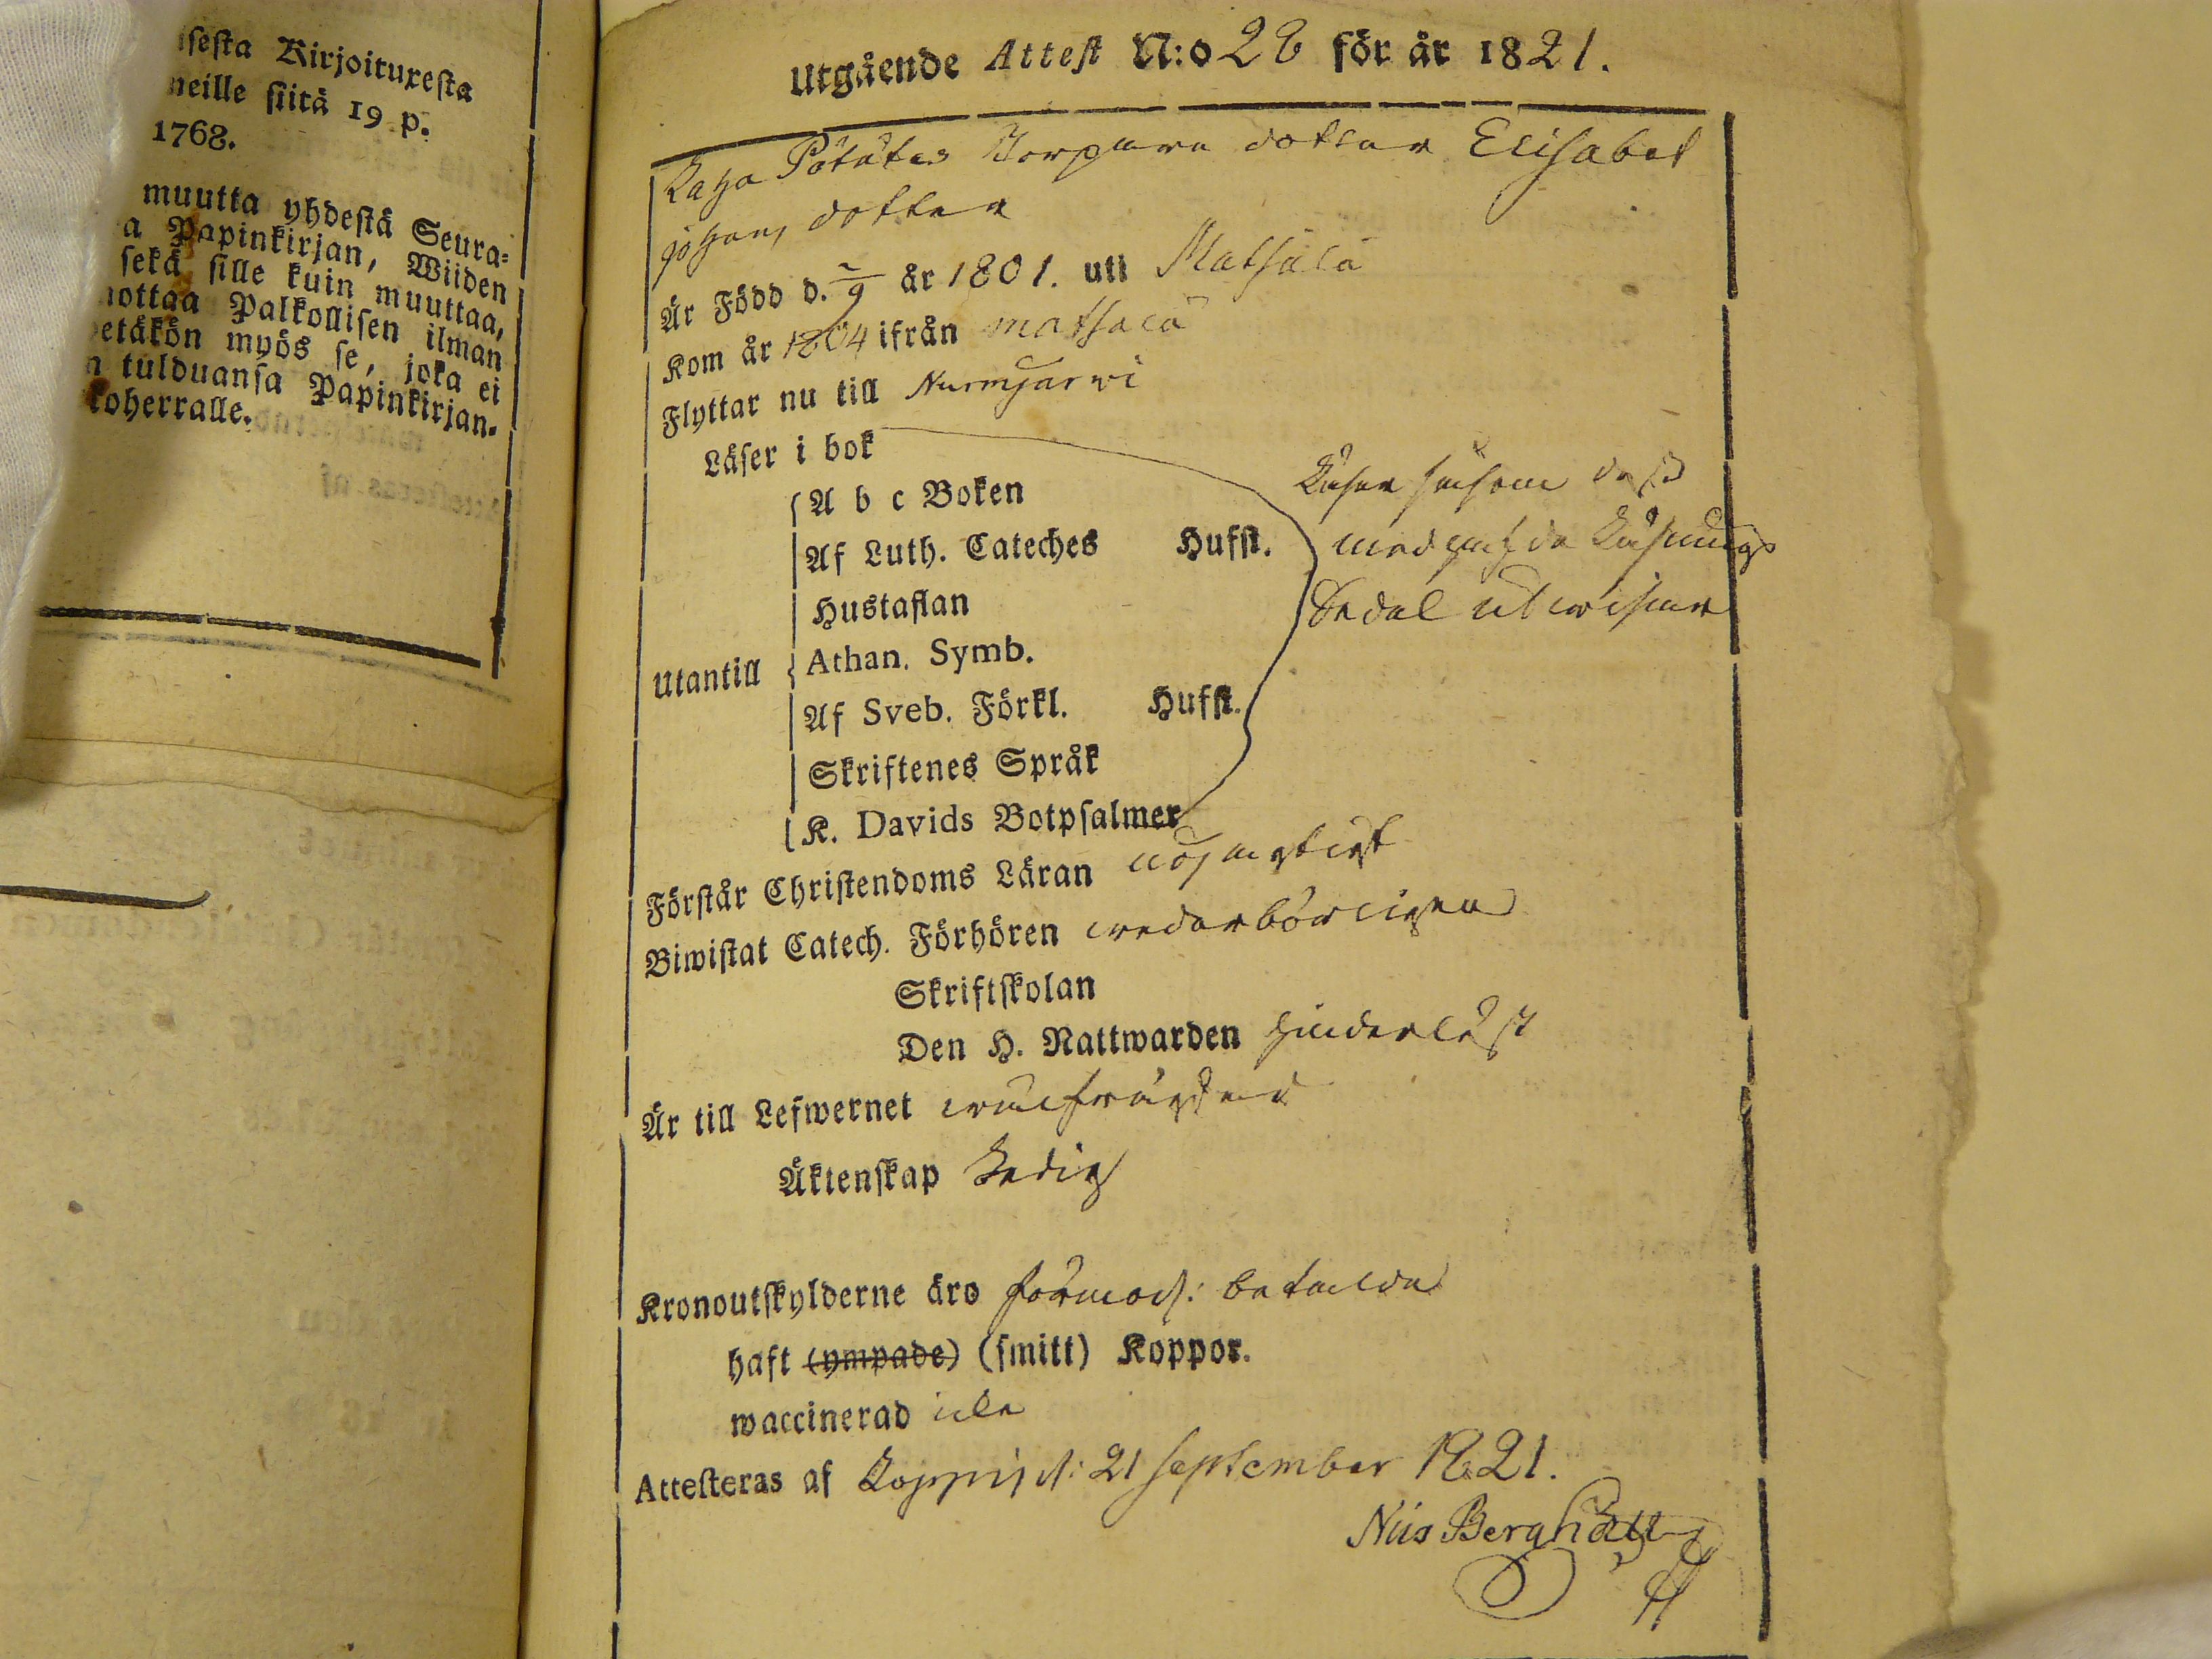 isesta Kirjoituxesta
neille siitä 19 p.
1768.
muutta yhdestä Seura-
a Papinkirjan, Wiiden
sekä sille kuin muuttaa,
ottaa Palkollisen ilman
etäkön myös se, joka ei
n tulduansa Papinkirjan-
koherralle.
Utgående Attest N:o 28 för år 1821.
Torpare dotter Elisabet
Johans dotter
Är Född d. 2/9 år 1801. uti Matsälä
Kom år 1804 ifrån matsälä
Flyttar nu till Nurmjärwi
Läser i bok
A b c Boken
Läser såsom
Af Luth. Cateches Hufst.
medhafde Läsnings
Hustaflan
Sedel utwisar
Utantill
Athan. Symb.
Af Sveb. Förkl. Hufst.
Skriftenes Språk
K. Davids Botpsalmer
Förstår Christendoms Läran nöjagtigt
Biwistat Catech. Förhören wederbörligen
Skriftskolan
Den H. Nattwarden hinderlöst
Är till Lefwernet wälfrägdad
Äktenskap Ledig
Kronoutskylderne äro förmod: betalda
haft (ympade) (smitt) Koppor.
waccinerad icke
Attesteras af Loppis d: 21 September 1821.
Nils Berghäll